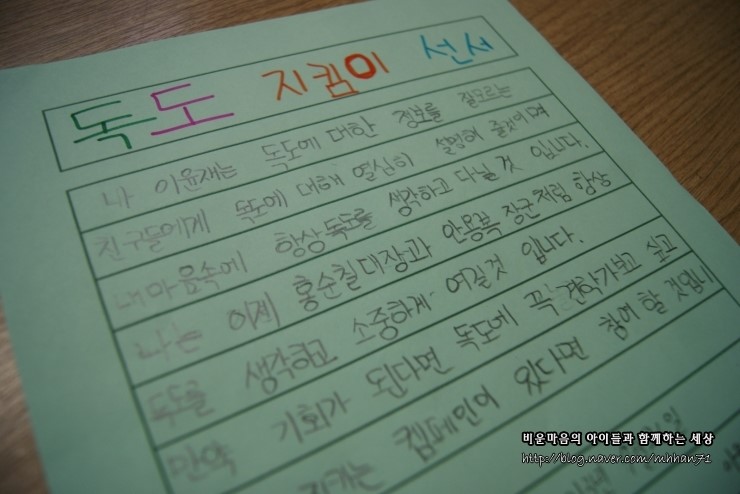 독도 지킴이 선서
나 이윤재는 독도에 대한 정보를 잘모르는
친구들에게 독도에 대해 열심히 설명해 줄것이며
내마음속에 항상독도를 생각하고 다닐것 입니다.
나는 이제 홍순칠대장과 안용복 장군처럼 항상
독도를 생각하고 소중하게 여길것 입니다.
만약 기회가 된다면 독도에 꼭 견학가보고 싶고
켐페인이 있다면 참여 할 것입니
비운마음의 아이들과 함께하는 세상
http://blog.naver.com/mhhan71